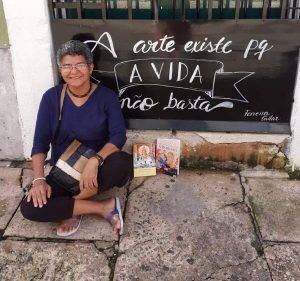 A arte existe pq
A VIDA
não basta
Ferreira
Gullar